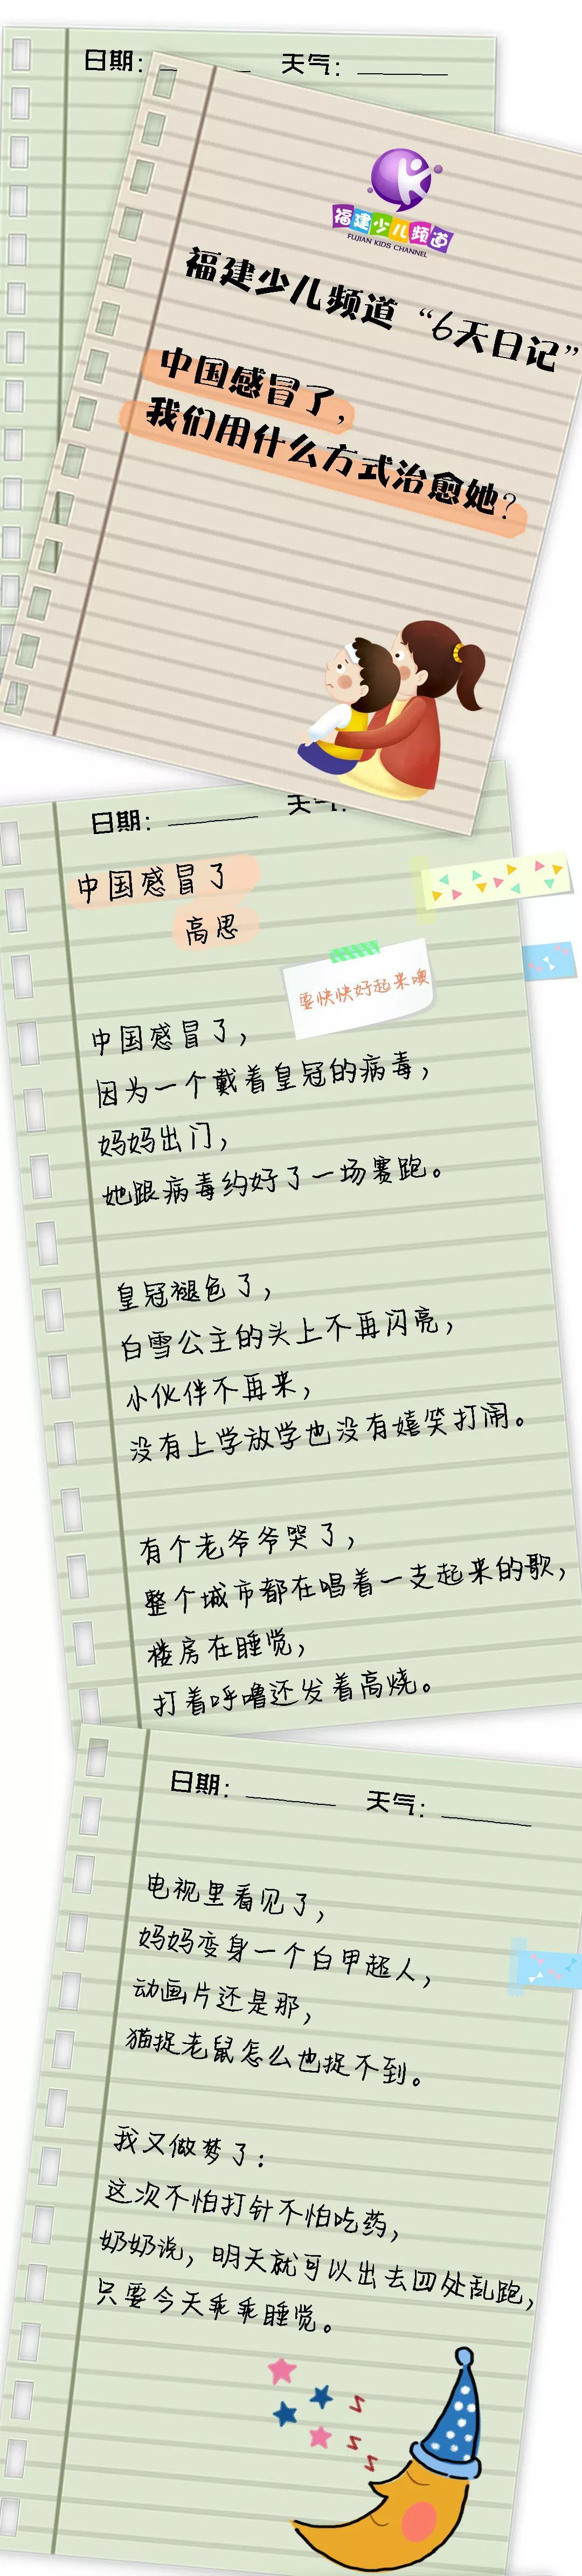 日期：
天气：
福建少儿频道
FUJIAN KIDS CHANNEL
福建少儿频道“6天日记”
中国感冒了，
我们用什么方式治愈她？
日期：
天气：
中国感冒了
高思
要快快好起来噢
中国感冒了，
因为一个戴着皇冠的病毒，
妈妈出门，
她跟病毒约好了一场赛跑。
皇冠褪色了，
白雪公主的头上不再闪亮，
小伙伴不再来，
没有上学放学也没有嬉笑打闹。
有个老爷爷哭了，
整个城市都在唱着一支起来的歌，
楼房在睡觉，
打着呼噜还发着高烧。
日期：
天气：
电视里看见了，
妈妈变身一个白甲超人，
动画片还是那，
猫捉老鼠怎么也捉不到。
我又做梦了：
这次不怕打针不怕吃药，
奶奶说，明天就可以出去四处乱跑，
只要今天乖乖睡觉。